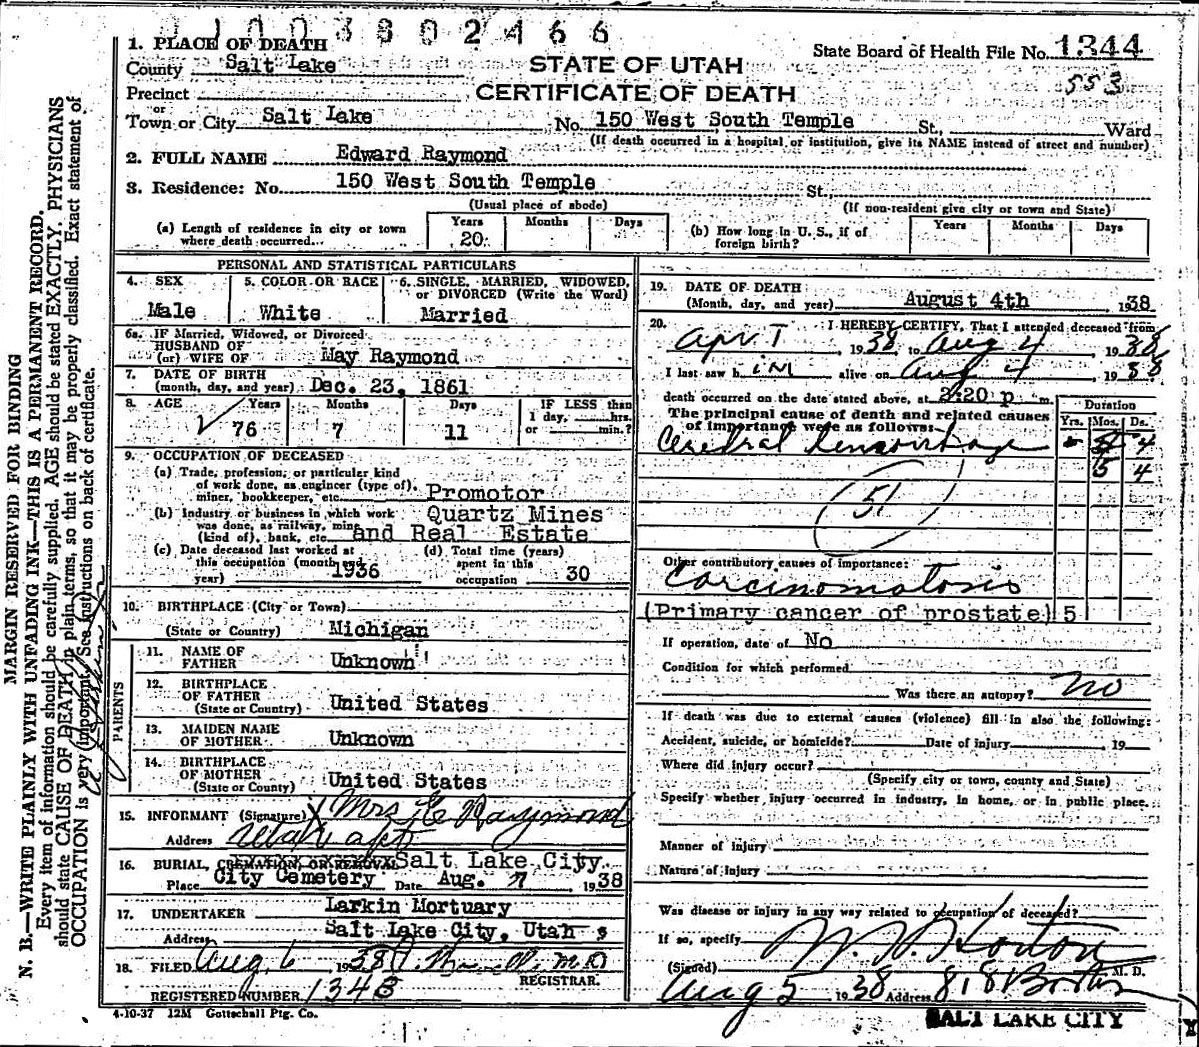 0 1 0 0 3 8 0 2 4 6 6
1. PLACE OF DEATH
County Salt Lake
State Board of Health File No. 1344
STATE OF UTAH
553
Precinct
CERTIFICATE OF DEATH
or
Town or City Salt Lake No. 150 West South Temple St., Ward
(If death occurred in a hospital or institution, give its NAME instead of street and number)
2. FULL NAME Edward Raymond
3. Residence: No. 150 West South Temple St.
(Usual place of abode) (If non-resident give city or town and State)
(a) Length of residence in city or town where death occurred... Years 20 Months Days
(b) How long in U. S., if of foreign birth? Years Months Days
PERSONAL AND STATISTICAL PARTICULARS
4. SEX Male
5. COLOR OR RACE White
6. SINGLE, MARRIED, WIDOWED, or DIVORCED (Write the Word) Married
6a. IF Married, Widowed, or Divorced
HUSBAND OF
(or) WIFE OF May Raymond
7. DATE OF BIRTH
(month, day, and year) Dec. 23, 1861
8. AGE Years 76 Months 7 Days 11
IF LESS than 1 day, hrs. or min.?
9. OCCUPATION OF DECEASED
(a) Trade, profession, or particular kind
of work done, as engineer (type of),
miner, bookkeeper, etc. Promotor
(b) Industry or business in which work Quartz Mines
was done, as railway, mine
(kind of), bank, etc. and Real Estate
(c) Date deceased last worked at
this occupation (month and
year) 1936
(d) Total time (years)
spent in this
occupation 30
10. BIRTHPLACE (City or Town)
(State or Country) Michigan
PARENTS
11. NAME OF
FATHER Unknown
12. BIRTHPLACE
OF FATHER
(State or Country) United States
13. MAIDEN NAME
OF MOTHER Unknown
14. BIRTHPLACE
OF MOTHER
(State or Country) United States
15. INFORMANT (Signature) X Mrs E Raymond
Address Utah apt
16. BURIAL, CREMATION OR REMOVAL Salt Lake City
Place City Cemetery Date Aug. 7 1938
17. UNDERTAKER Larkin Mortuary
Address Salt Lake City, Utah s
18. FILED Aug. 6 1938 M.D.
REGISTRAR.
REGISTERED NUMBER 1343
4-10-37 12M Gottschall Ptg. Co.
19. DATE OF DEATH
(Month, day, and year) August 4th 1938
20. I HEREBY CERTIFY, That I attended deceased from
Apr. 1, 1938 to Aug 4 1938
I last saw him alive on Aug 4 1938
death occurred on the date stated above, at 3:20 p m.
The principal cause of death and related causes
of importance were as follows:
Duration
Yrs. Mos. Ds.
Cerebral hemorrhage 4
5 4
51
Other contributory causes of importance:
Carcinomatosis
(Primary cancer of prostate) 5
If operation, date of No
Condition for which performed
Was there an autopsy? no
If death was due to external causes (violence) fill in also the following:
Accident, suicide, or homicide? Date of injury 19
Where did injury occur?
(Specify city or town, county and State)
Specify whether injury occurred in industry, in home, or in public place.
Manner of injury
Nature of injury
Was disease or injury in any way related to occupation of deceased?
If so, specify
(Signed) Horton M. D.
Aug 5, 1938 Address 818 Boston
SALT LAKE CITY
MARGIN RESERVED FOR BINDING
N. B.—WRITE PLAINLY WITH UNFADING INK—THIS IS A PERMANENT RECORD.
Every item of information should be carefully supplied. AGE should be stated EXACTLY. PHYSICIANS
should state CAUSE OF DEATH in plain terms, so that it may be properly classified. Exact statement of
OCCUPATION is very important. See instructions on back of certificate.